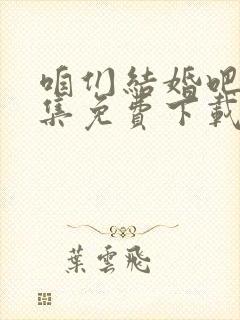 咱们結婚吧
集免費下載
葉雲飛